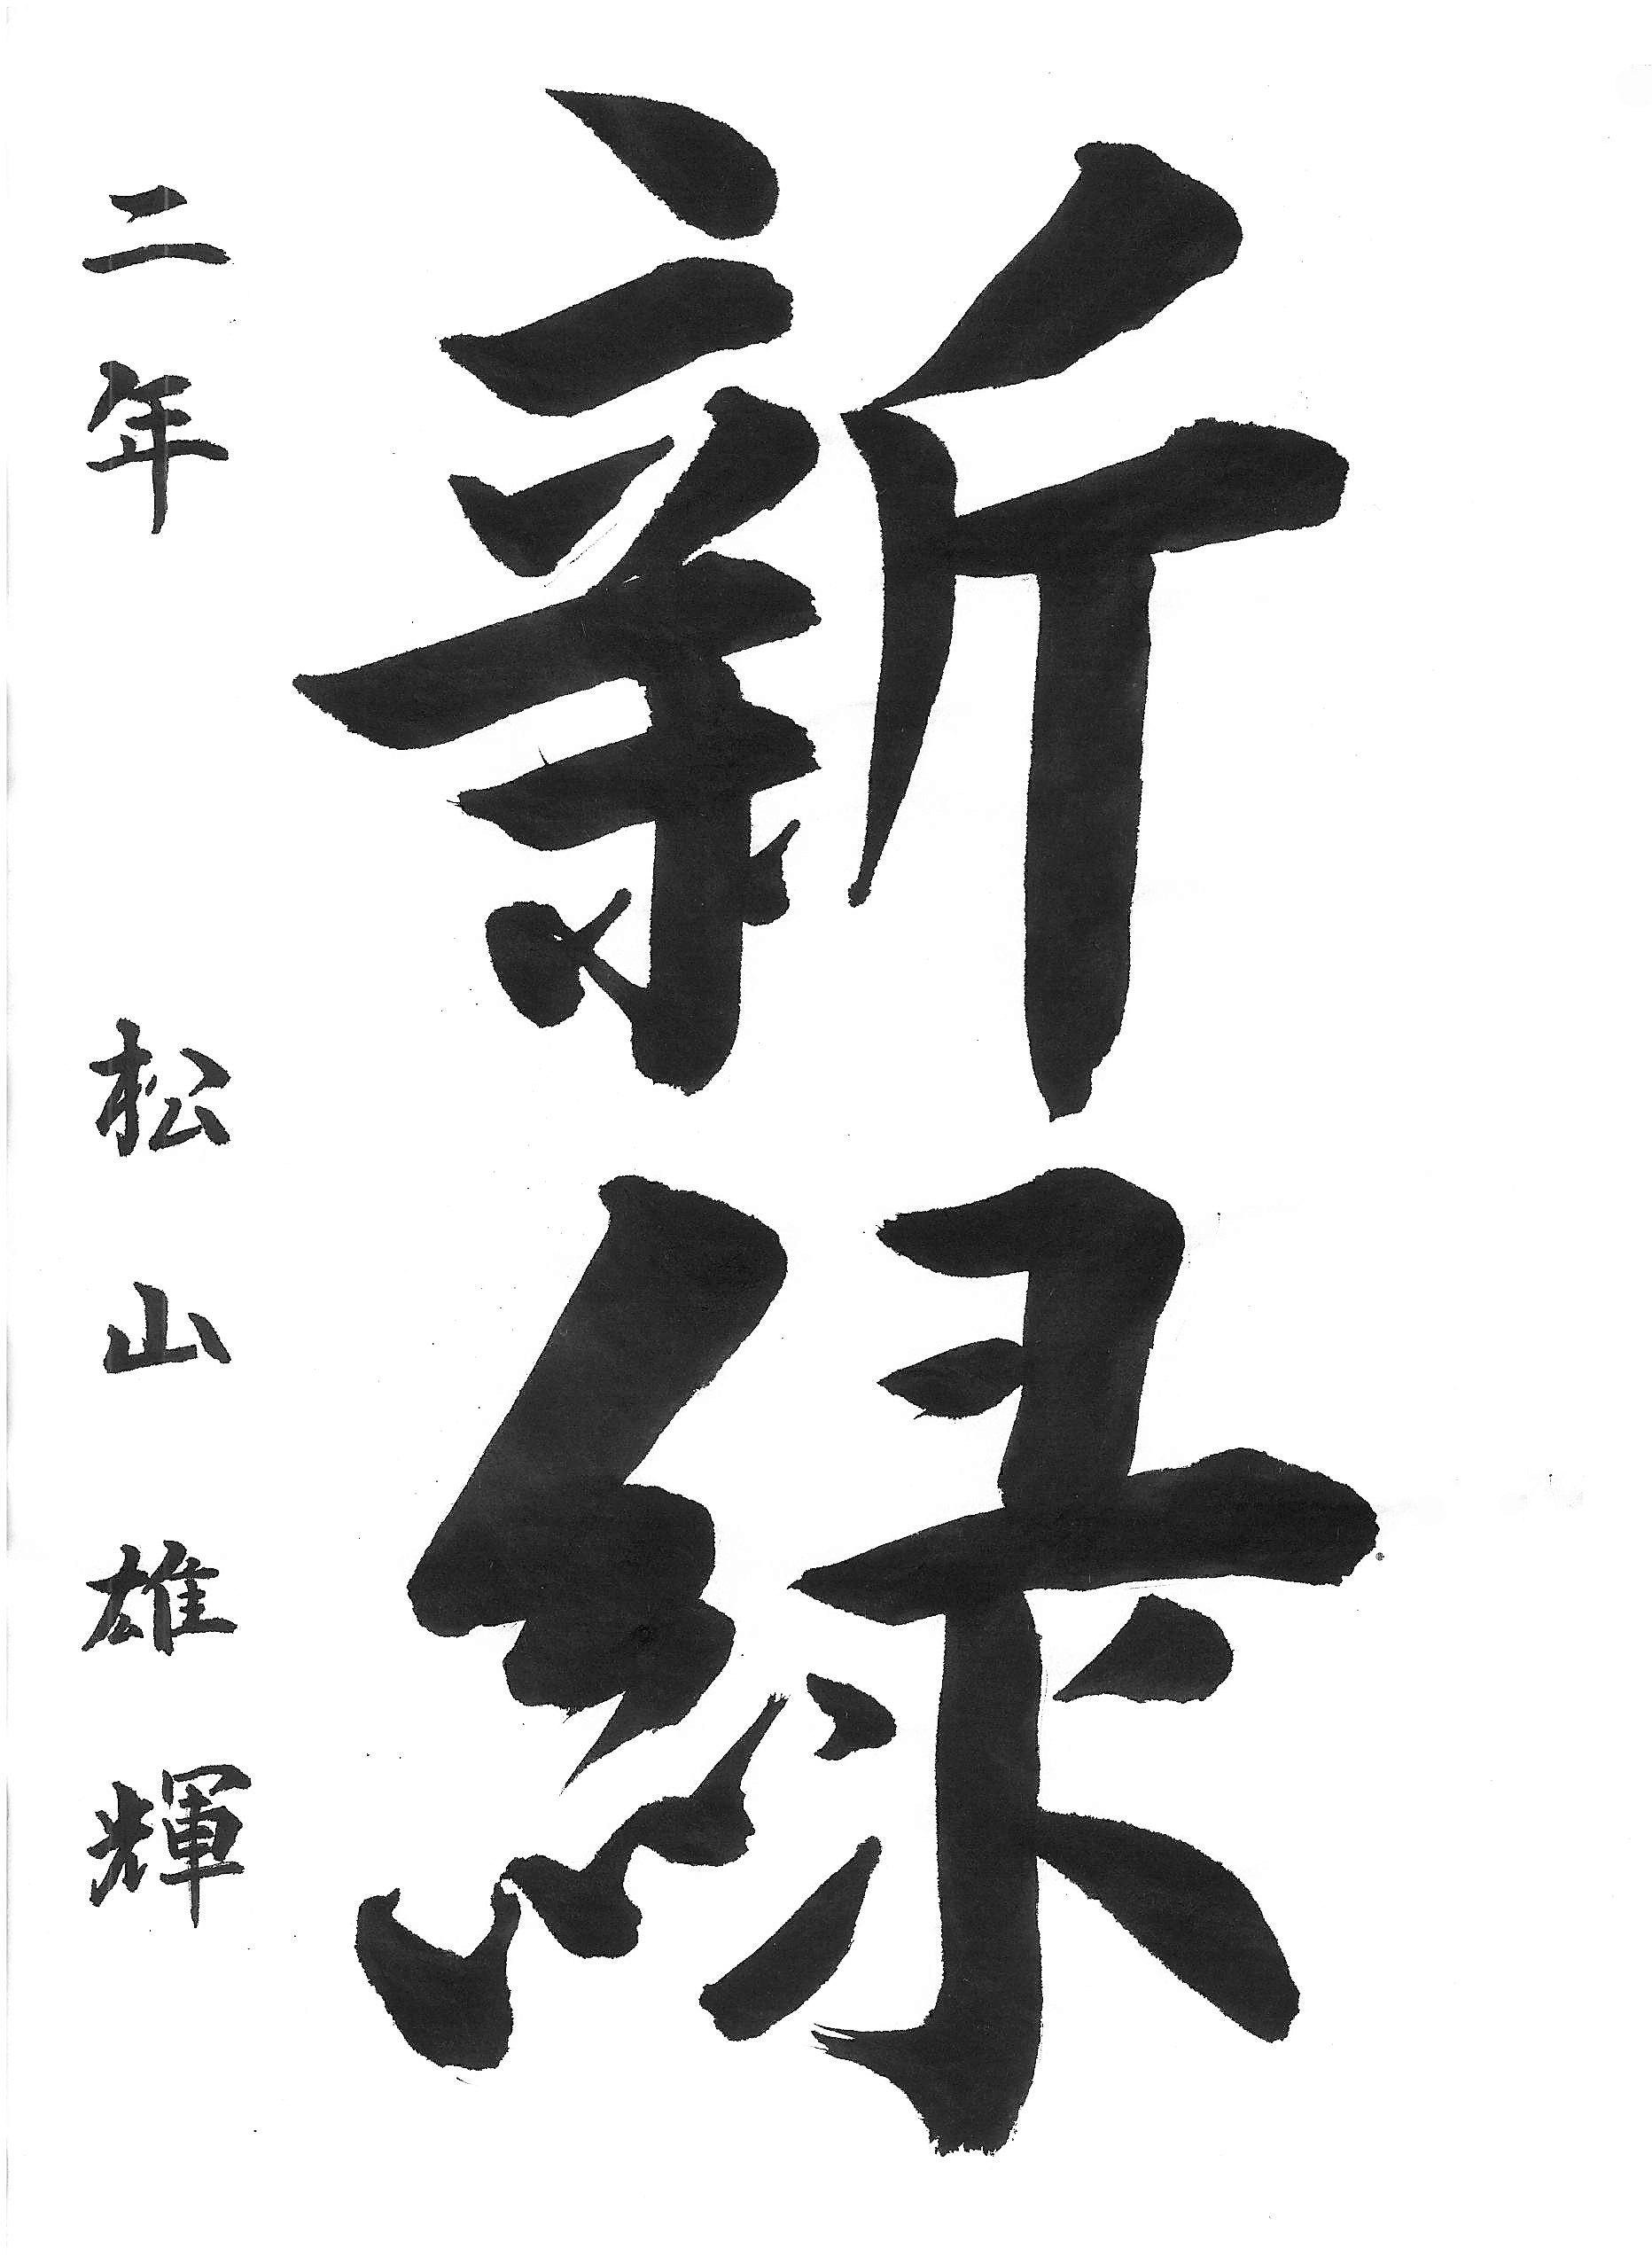 新緑
二年 松山雄輝